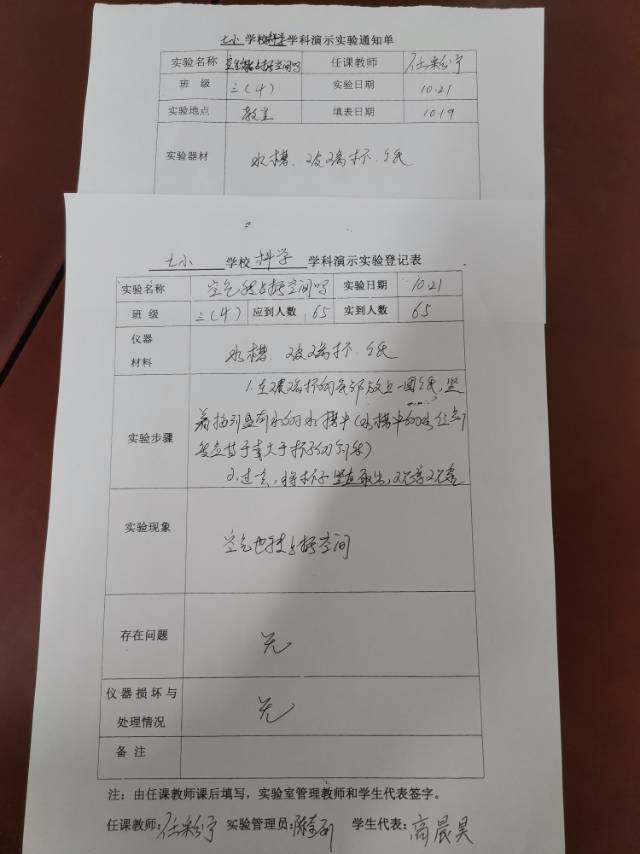 七小 学校 科学 学科演示实验通知单
实验名称 空气能占据空间吗 任课教师
班 级 三(4) 实验日期 10.21
实验地点 教室 填表日期 10.19
实验器材 水槽、玻璃杯、纸
七小 学校 科学 学科演示实验登记表
实验名称 空气能占据空间吗 实验日期 10.21
班 级 三(4) 应到人数 65 实到人数 65
仪器
材料 水槽、玻璃杯、纸
1.在玻璃杯的底部放上一团纸,竖
着扣到盛有水的水槽中(水槽中的水位
等于或大于杯子的
实验步骤
2.过一会,将杯子竖直取出,
实验现象 空气也能占据空间
存在问题 无
仪器损坏与
处理情况 无
备 注
注:由任课教师课后填写,实验室管理教师和学生代表签字。
任课教师: 实验管理员: 学生代表:高晨昊